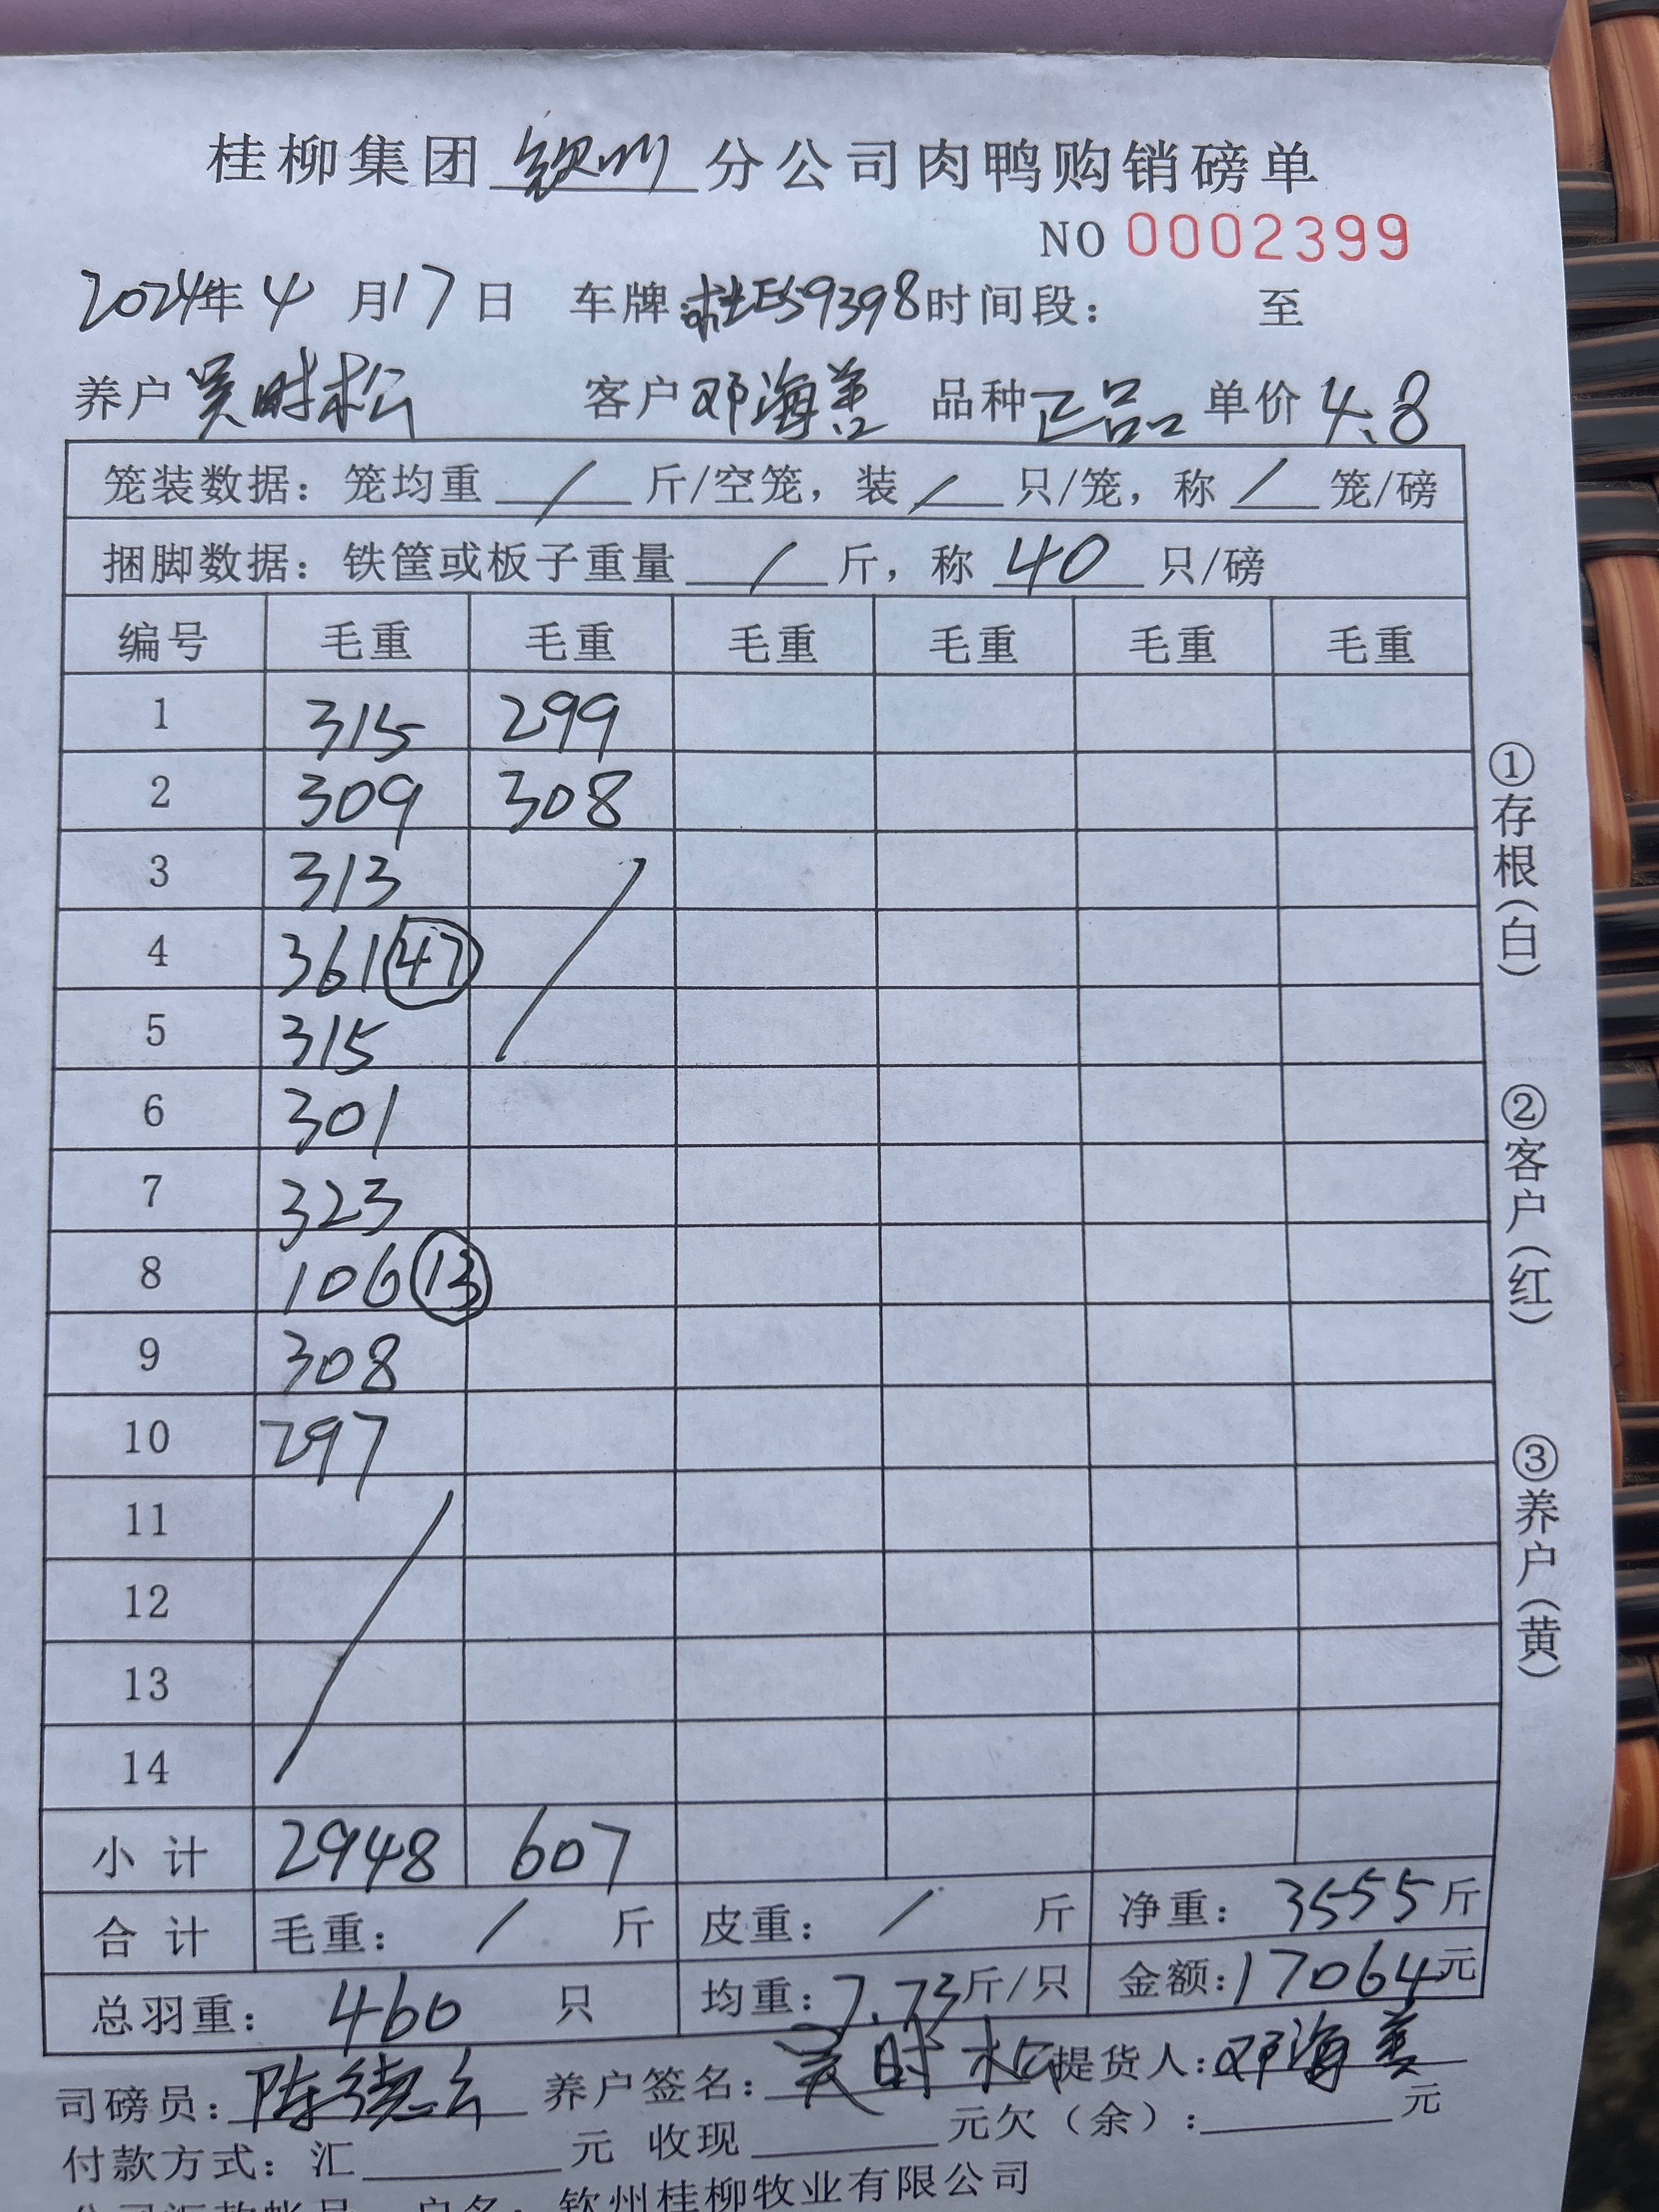 桂柳集团 钦州 分公司肉鸭购销磅单
NO 0002399
2024年 4 月 17 日 车牌:桂E59398 时间段: 至
养户 吴时松 客户 邓海善 品种 正品 单价 4.8
笼装数据: 笼均重 / 斤/空笼, 装 / 只/笼, 称 / 笼/磅
捆脚数据: 铁筐或板子重量 / 斤, 称 40 只/磅
编号 毛重 毛重 毛重 毛重 毛重 毛重
1 315 299
2 309 308
3 313
4 361 47
5 315
6 301
7 323
8 106 13
9 308
10 297
11
12
13
14
小计 2948 607
合计 毛重: / 斤 皮重: / 斤 净重: 3555 斤
总羽重: 460 只 均重: 7.73 斤/只 金额: 17064 元
司磅员: 陈德云 养户签名: 吴时松 提货人: 邓海善
付款方式: 汇 元 收现 元 欠(余): 元
户名: 钦州桂柳牧业有限公司
①存根(白)
②客户(红)
③养户(黄)